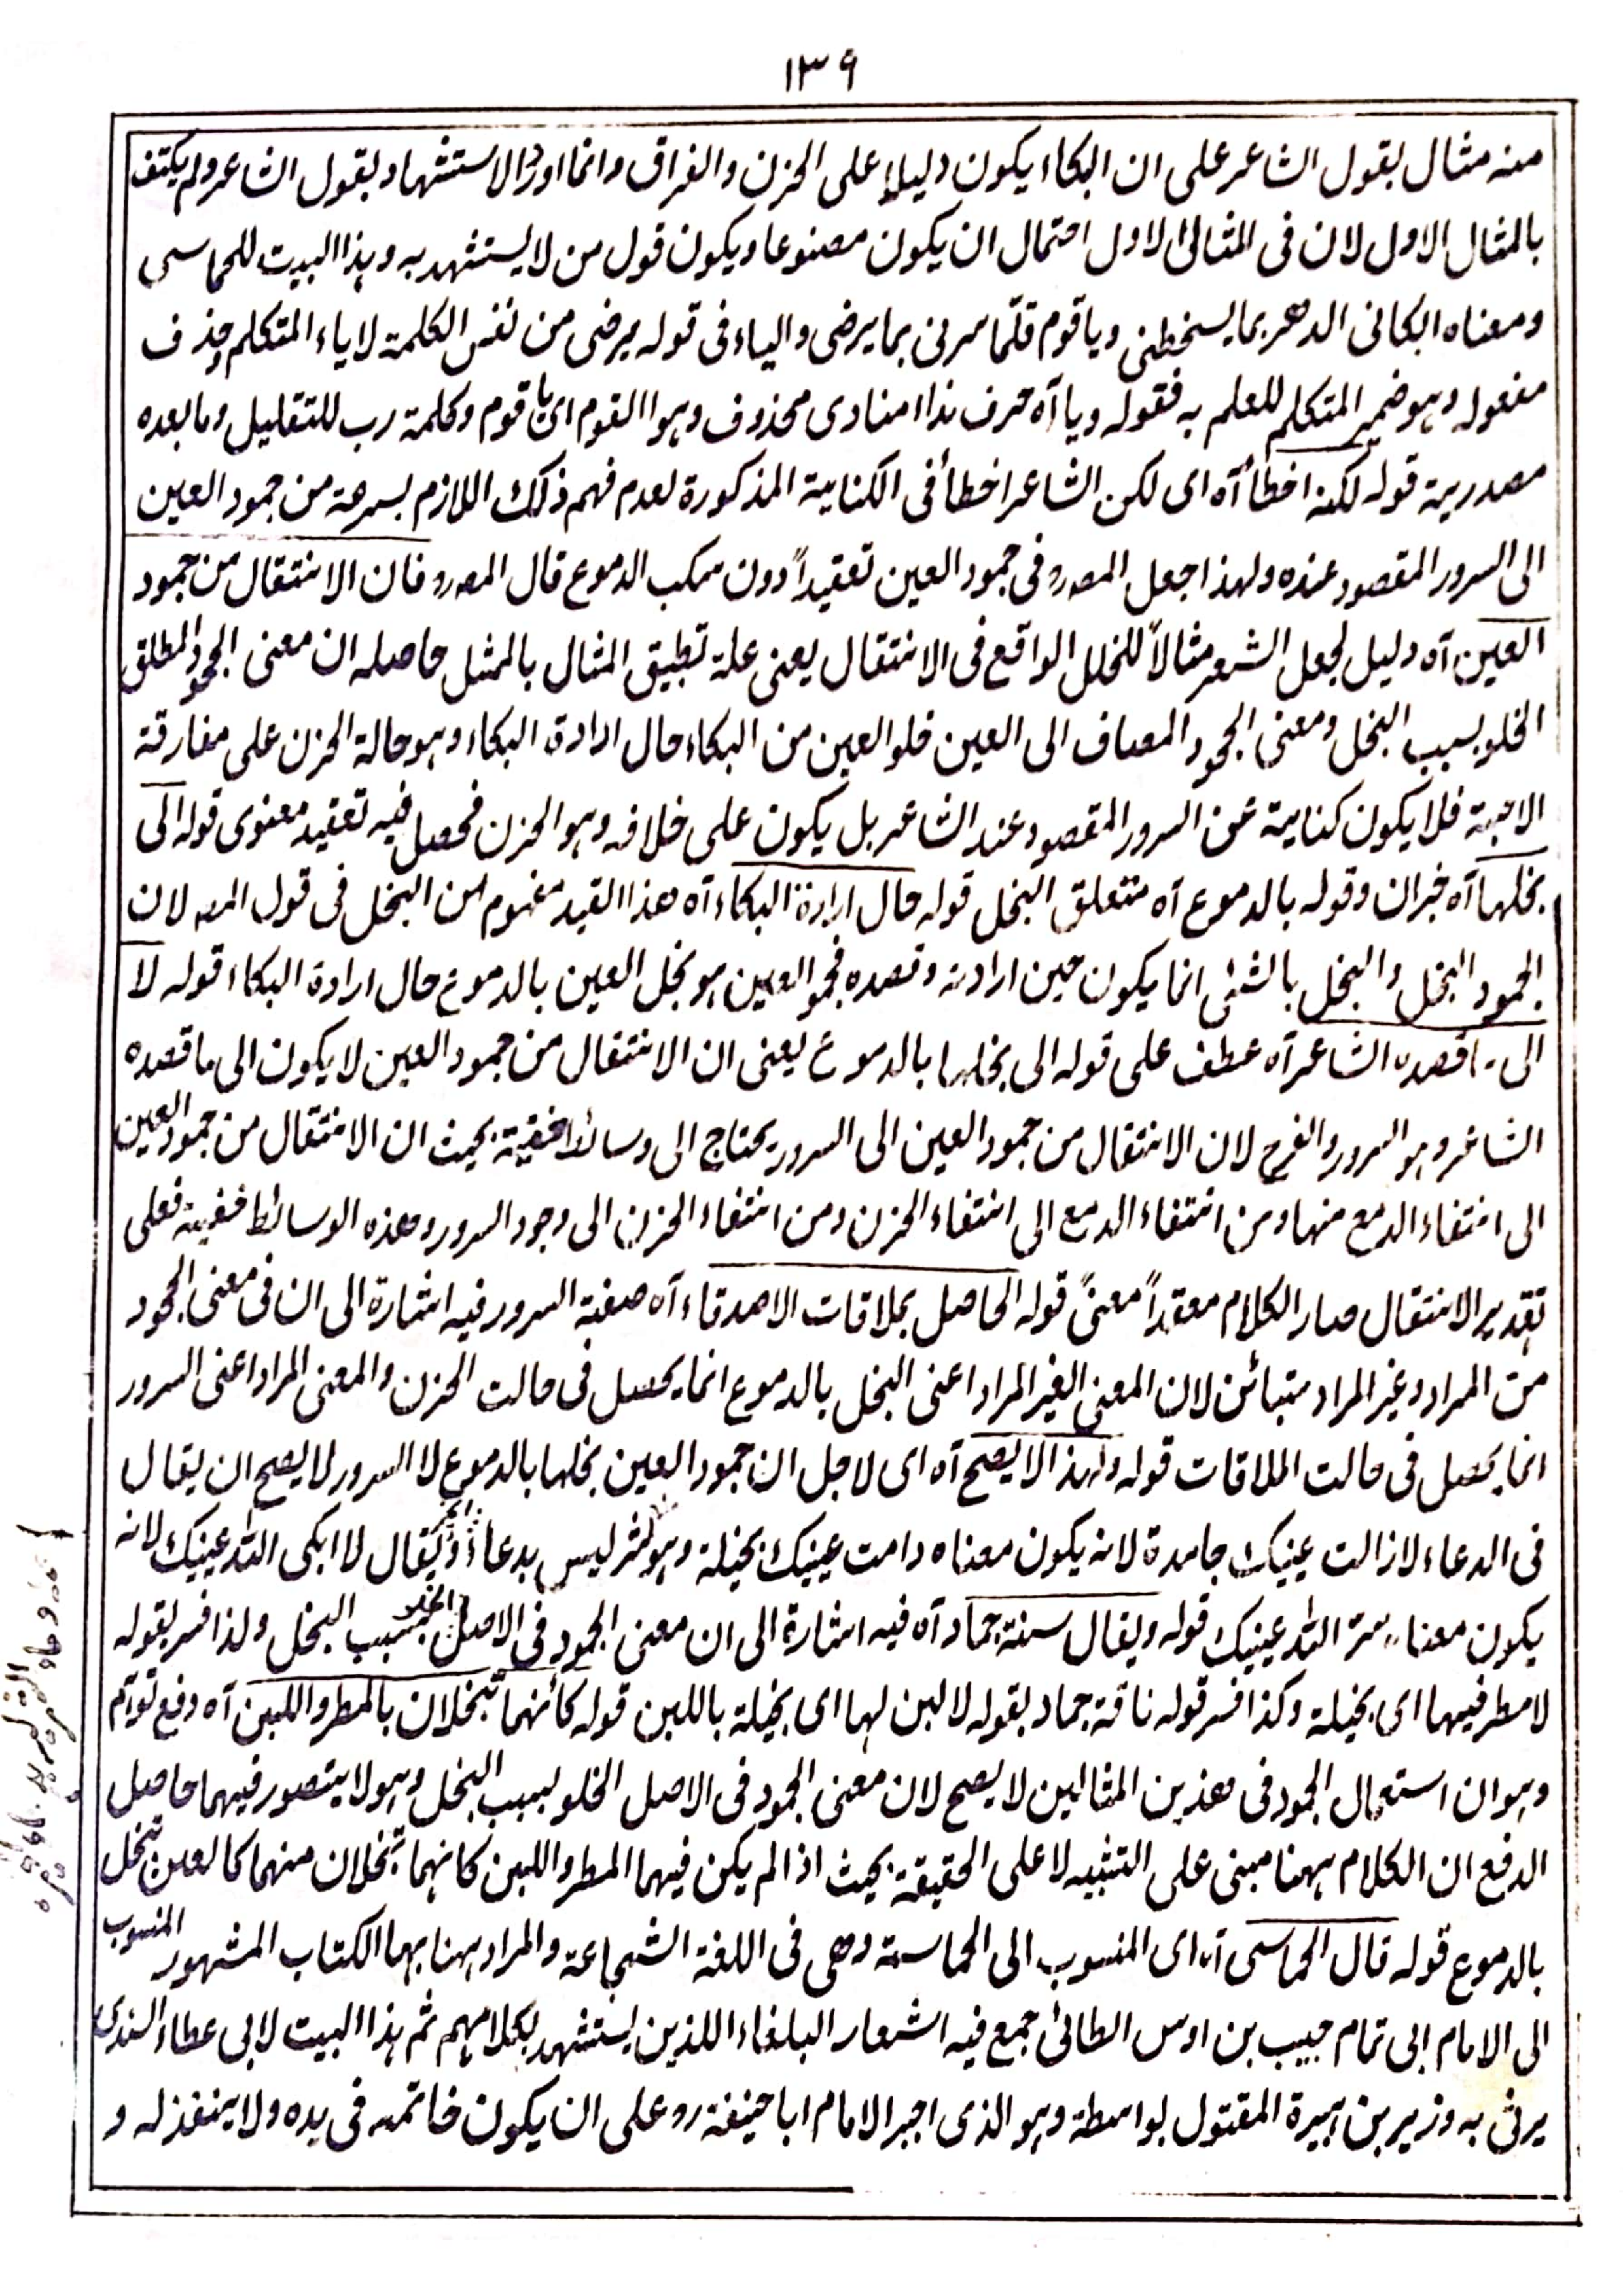 ١٣٩
منه مثال بقول الشاعر على ان البكاء يكون دليلا على الحزن والفراق وانما اورد الاستشهاد بقول الشاعر ولم يكتف
بالمثال الاول لان فى المثال الاول احتمال ان يكون مصنوعا ويكون قول من لا يستشهد به وہذا البيت للحماسى
ومعناه ابكانى الدهر بما يسخطنى ويا قوم قلّما سرنى بما يرضى والياء فى قوله يرضى من نفس الكلمة لا ياء المتكلم وحذف
مفعوله وہو ضمير المتكلم للعلم به فقوله ويا آه حرف نداء منادى محذوف وہو القوم اى يا قوم وكلمة رب للتقليل وما بعده
مصدرية قوله لكنه اخطأ آه اى لكن الشاعر اخطأ فى الكناية المذكورة لعدم فهم ذلك اللازم بسرعة من جمود العين
الى السرور المقصود عنده ولهذا جعل المصر‌ فى جمود العين تعقيداً دون سكب الدموع قال المصر‌ فان الانتقال من جمود
العين آه دليل لجعل الشعر مثالاً للخلل الواقع فى الانتقال يعنى علة تطبيق المثال بالممثل حاصله ان معنى الجمود المطلق
الخلو بسبب البخل ومعنى الجمود المضاف الى العين خلو العين من البكاء حال ارادة البكاء وہو حالة الحزن على مفارقة
الاحبة فلا يكون كناية عن السرور المقصود عند الشاعر بل يكون على خلافه وہو الحزن فحصل فيه تعقيد معنوى قوله الى
بخلها آه خبر ان وقوله بالدموع آه متعلق البخل قوله حال ارادة البكاء آه هذا القيد مفهوم من البخل فى قول المصـ لان
الجمود البخل والبخل بالشئى انما يكون حين ارادته وقصده فجمود العين ہو بخل العين بالدموع حال ارادة البكاء قوله لا
الى ما قصده الشاعر آه عطف على قوله الى بخلها بالدموع يعنى ان الانتقال من جمود العين لا يكون الى ما قصده
الشاعر وہو السرور والفرح لان الانتقال من جمود العين الى السرور يحتاج الى وسائط خفية بحيث ان الانتقال من جمود العين
الى انتفاء الدمع منها ومن انتفاء الدمع الى انتفاء الحزن ومن انتفاء الحزن الى وجود السرور وهذه الوسائط خفية فعلى
تقدير الانتقال صار الكلام معقداً معنىً قوله الحاصل بملاقات الاصدقاء آه صفة السرور فيه اشارة الى ان فى معنى الجمود
من المراد وغير المراد متبائن لان المعنى الغير المراد اعنى البخل بالدموع انما يحصل فى حالت الحزن والمعنى المراد اعنى السرور
انما يحصل فى حالت الملاقات قوله ولهذا لا يصح آه اى لاجل ان جمود العين بخلها بالدموع لا السرور لا يصح ان يقال
فى الدعاء لا زالت عينيك جامدة لانه يكون معناه دامت عينيك بخيلة وہو ليس بدعاء ويقال لا ابكى الله عينيك لانه
يكون معناه سر الله عينيك قوله ويقال سنة جماد آه فيه اشارة الى ان معنى الجمود فى الاصل الخلو بسبب البخل ولذا فسر بقوله
لا مطر فيها اى بخيلة وكذا فسر قوله ناقة جماد بقوله لا لبن لہا اى بخيلة باللبن قوله كأنهما تبخلان بالمطر واللبن آه دفع توہم
وہو ان استعمال الجمود فى هذين المثالين لا يصح لان معنى الجمود فى الاصل الخلو بسبب البخل وہو لا يتصور فيهما حاصل
الدفع ان الكلام ہهنا مبنى على التشبيه لا على الحقيقة بحيث اذا لم يكن فيهما المطر واللبن كانہما تبخلان منهما كالعين تبخل
بالدموع قوله قال الحماسى آه اى المنسوب الى الحماسة وهى فى اللغة الشجاعة والمراد ہهنا بہا الكتاب المشہور المنسوب
الى الامام ابى تمام حبيب بن اوس الطائى جمع فيه اشعار البلغاء اللذين يستشهد بكلامہم ثم ہذا البيت لابى عطاء السندى
يرثى به وزير بن ہبيرة المقتول بواسطة وہو الذى اجبر الامام ابا حنيفة رو على ان يكون خاتمه فى يده ولا ينفذ له و